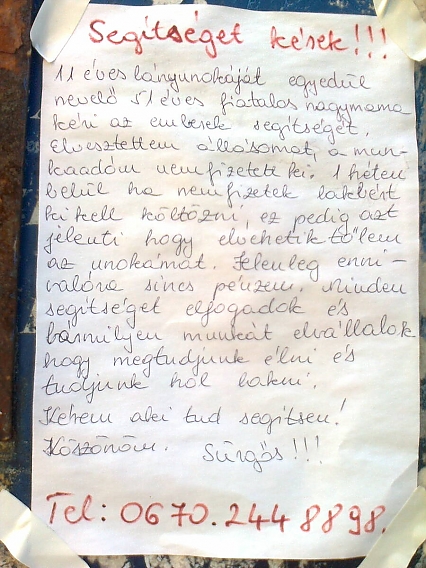 Segítséget kérek!!!
11 éves lányunokáját egyedül
nevelő 51 éves fiatalos nagymama
kéri az emberek segítségét.
Elvesztettem állásomat, a mun-
kaadóm nem fizetett ki. 1 héten
belül ha nem fizetek lakbért
ki kell költözni, ez pedig azt
jelenti hogy elvehetik tőlem
az unokámat. Jelenleg enni-
valóra sincs pénzem. Minden
segítséget elfogadok és
bármilyen munkát elvállalok
hogy megtudjunk élni és
tudjunk hol lakni.
Kérem aki tud segítsen!
Köszönöm. Sürgős!!!
Tel: 0670.244 8898.